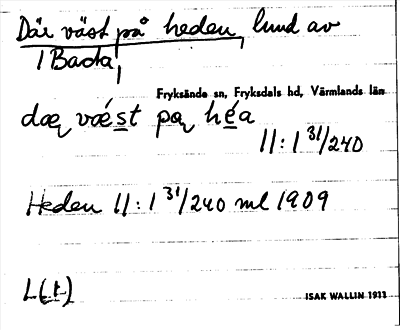 Där väst på heden, lund av
1 Bada,
Fryksände sn, Fryksdals hd, Värmlands län
dæ væst pa héa
11:1 31/240
Heden 11:1 31/240 ml 1909
L(t)
ISAK WALLIN 1933